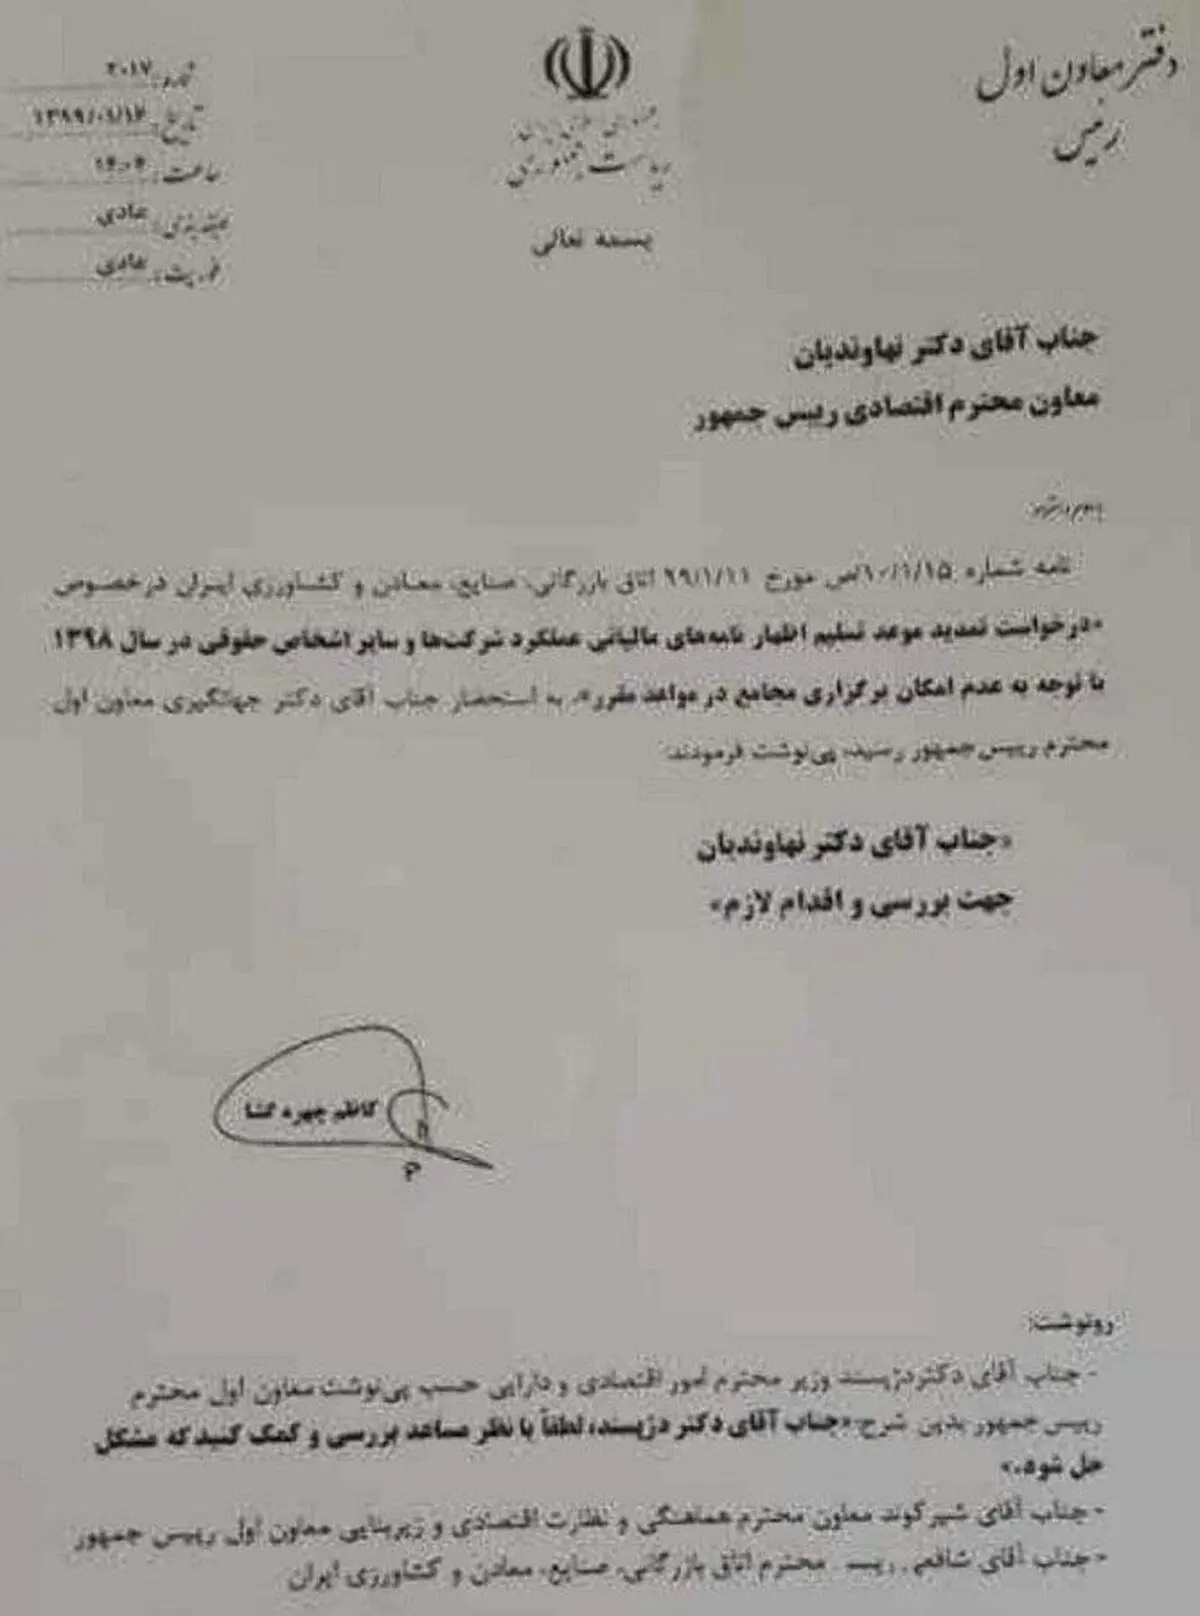 دفتر معاون اول
رئیس
جمهوری اسلامی ایران
ریاست جمهوری
شماره: ۲۰۱۷
تاریخ: ۱۳۹۹/۰۱/۱۷
ساعت:
طبقه بندی: عادی
فوریت: عادی
بسمه تعالی
جناب آقای دکتر نهاوندیان
معاون محترم اقتصادی رییس جمهور
با سلام و احترام
نامه شماره ۱۰/۱/۱۵/ص مورخ ۹۹/۱/۱۱ اتاق بازرگانی، صنایع، معادن و کشاورزی ایران درخصوص
«درخواست تمدید موعد تسلیم اظهار نامه‌های مالیاتی عملکرد شرکت‌ها و سایر اشخاص حقوقی در سال ۱۳۹۸
با توجه به عدم امکان برگزاری مجامع در مواعد مقرر»، به استحضار جناب آقای دکتر جهانگیری معاون اول
محترم رییس جمهور رسید، پی‌نوشت فرمودند:
«جناب آقای دکتر نهاوندیان
جهت بررسی و اقدام لازم»
کاظم چهره گشا
رونوشت:
- جناب آقای دکتر دژپسند وزیر محترم امور اقتصادی و دارایی حسب پی‌نوشت معاون اول محترم
رییس جمهور بدین شرح «جناب آقای دکتر دژپسند، لطفاً با نظر مساعد بررسی و کمک کنید که مشکل
حل شود.»
- جناب آقای شیرکوند معاون محترم هماهنگی و نظارت اقتصادی و زیربنایی معاون اول رییس جمهور
- جناب آقای شافعی رییس محترم اتاق بازرگانی، صنایع، معادن و کشاورزی ایران